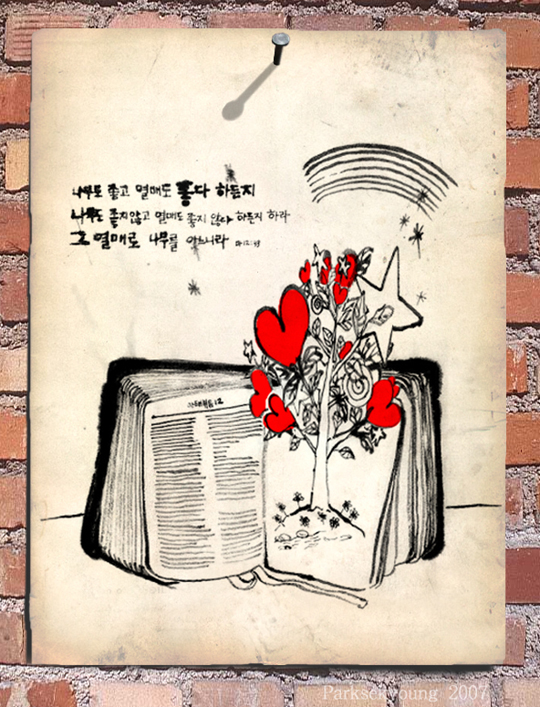 나무도 좋고 열매도 좋다 하든지
나무도 좋지않고 열매도 좋지 않다 하든지 하라
그 열매로 나무를 아느니라 마 12:33
마태복음 12
Parkseryoung 2007